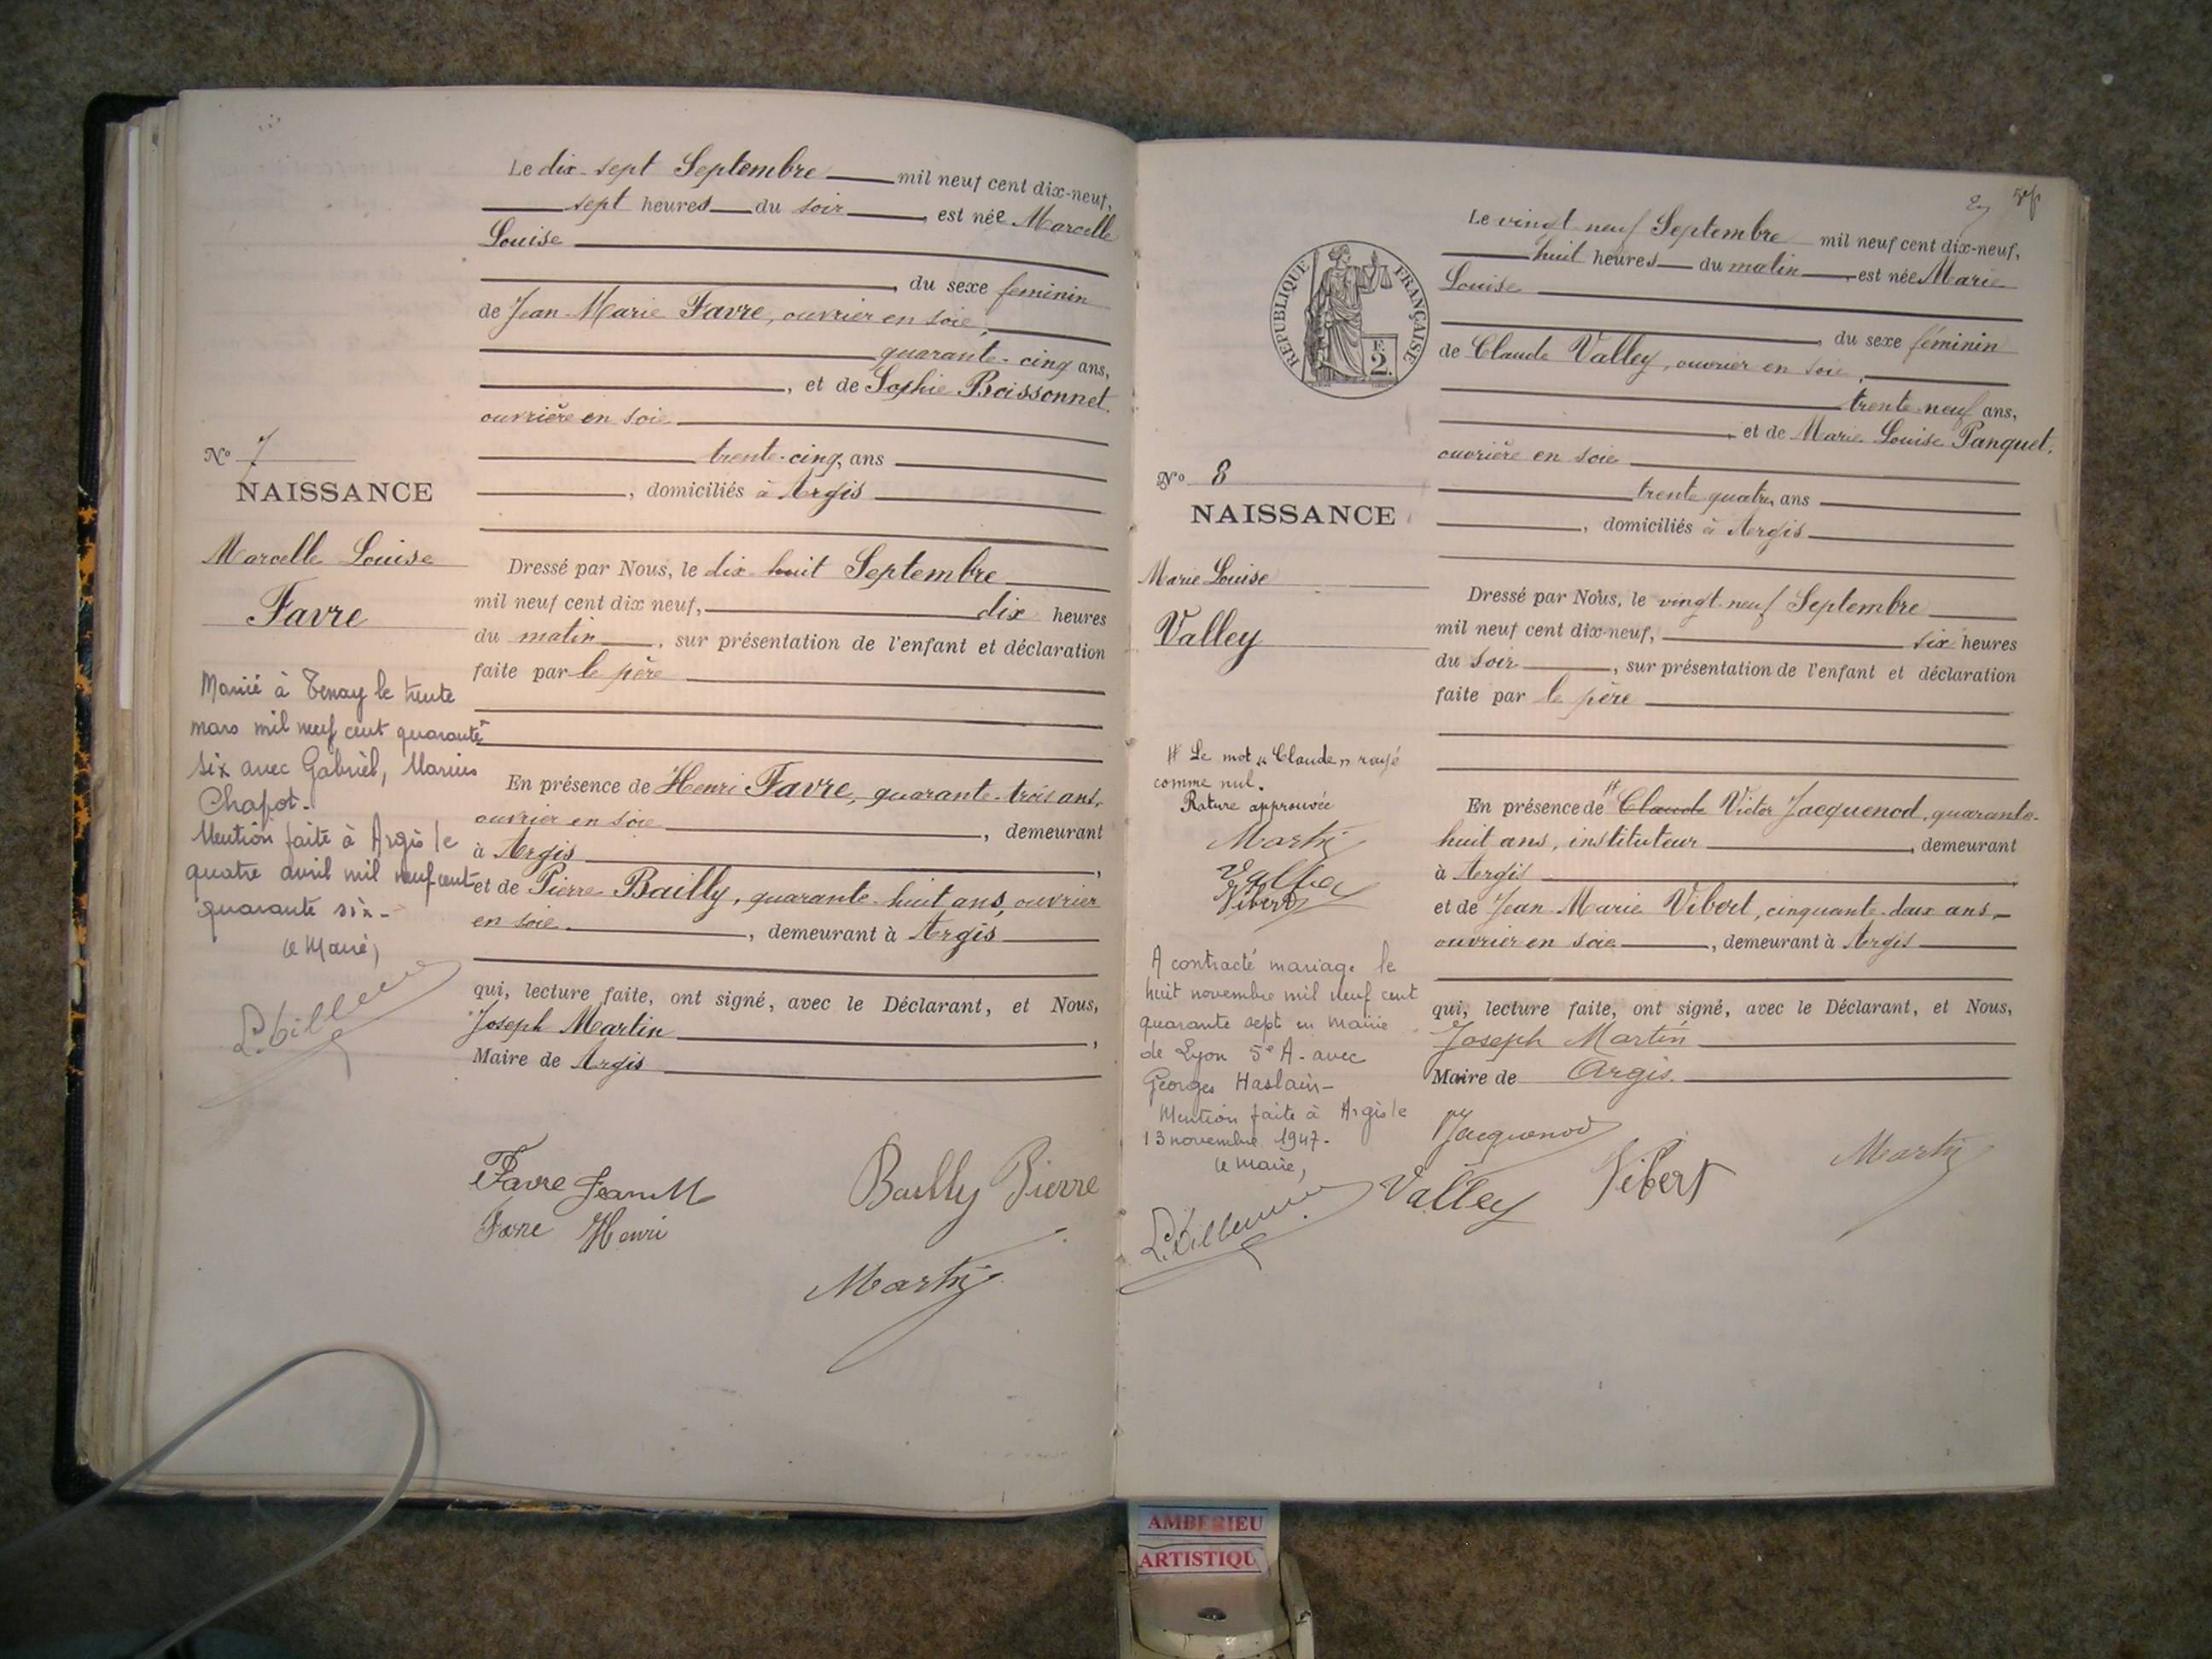 Le dix-sept Septembre mil neuf cent dix-neuf,
sept heures du soir, est née Marcelle
Louise
, du sexe féminin
de Jean-Marie Favre, ouvrier en soie,
quarante-cinq ans,
, et de Sophie Boissonnet,
ouvrière en soie
trente-cinq ans
, domiciliés à Argis
No 7
NAISSANCE
Marcelle Louise
Favre
Dressé par Nous, le dix-huit Septembre
mil neuf cent dix neuf, dix heures
du matin, sur présentation de l'enfant et déclaration
faite par le père
Marié à Tenay le trente
mars mil neuf cent quarante
six avec Gabriel, Marius
Chapot.
Mention faite à Argis le
quatre avril mil neuf cent
quarante six.-
le Maire,
En présence de Henri Favre, quarante-trois ans,
ouvrier en soie, demeurant
à Argis,
et de Pierre Bailly, quarante-huit ans, ouvrier
en soie, demeurant à Argis
qui, lecture faite, ont signé, avec le Déclarant, et Nous,
Joseph Martin,
Maire de Argis
Favre Jean M
Favre Henri
Bailly Pierre
Martin
RÉPUBLIQUE FRANÇAISE
F.
2.
Le vingt-neuf Septembre mil neuf cent dix-neuf,
huit heures du matin, est née Marie
Louise
, du sexe féminin
de Claude Valley, ouvrier en soie,
trente-neuf ans,
, et de Marie Louise Panquet,
ouvrière en soie
trente-quatre ans
, domiciliés à Argis
No 8
NAISSANCE
Marie Louise
Valley
Dressé par Nous, le vingt-neuf Septembre
mil neuf cent dix-neuf, six heures
du soir, sur présentation de l'enfant et déclaration
faite par le père
# Le mot "Claude" rayé
comme nul.
Rature approuvée
Martin
Valley
Vibert
A contracté mariage le
huit novembre mil neuf cent
quarante sept en mairie
de Lyon 5e A- avec
Georges Haslain-
Mention faite à Argis le
13 novembre 1947-
le Maire,
En présence de # Claude Victor Jacquenod, quarante-
huit ans, instituteur, demeurant
à Argis,
et de Jean-Marie Vibert, cinquante-deux ans,
ouvrier en soie, demeurant à Argis
qui, lecture faite, ont signé, avec le Déclarant, et Nous,
Joseph Martin
Maire de Argis.
Jacquenod
Valley
Vibert
Martin
AMBERIEU
ARTISTIQU